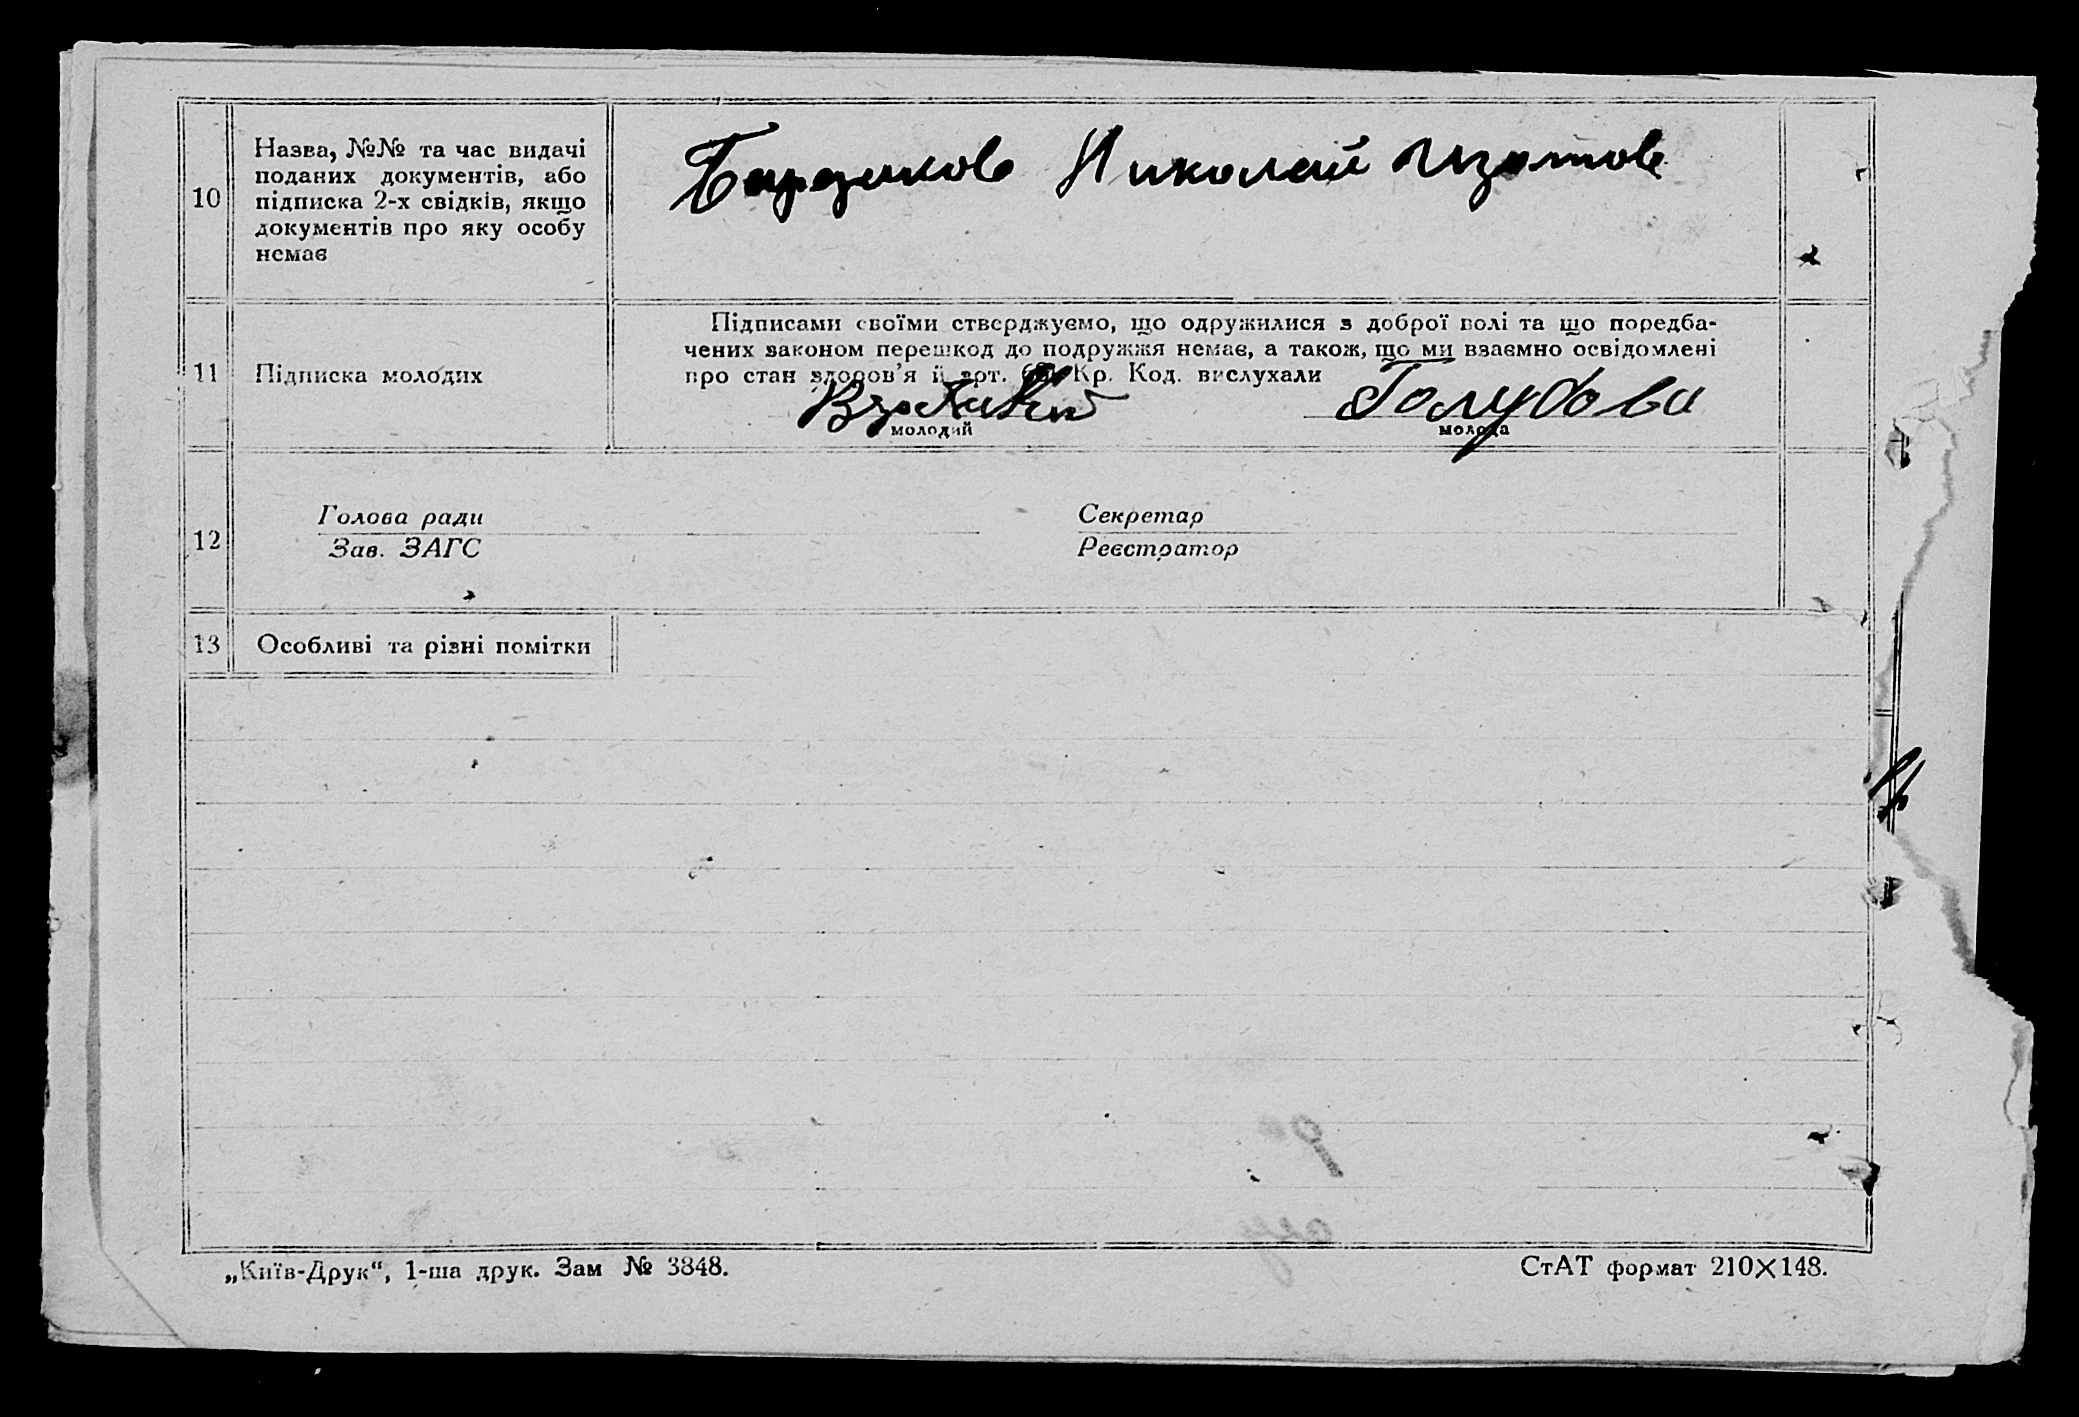 10
Назва, №№ та час видачі
поданих документів, або
підписка 2-х свідків, якщо
документів про яку особу
немає
Николай
11
Підписка молодих
Підписами своїми стверджуємо, що одружилися з доброї волі та що передба-
чених законом перешкод до подружжя немає, а також, що ми взаємно освідомлені
про стан здоров'я й арт. Кр. Код. вислухали
Голубова
молодий
молода
12
Голова ради
Зав. ЗАГС
Секретар
Реєстратор
13
Особливі та різні помітки
„Київ-Друк“, 1-ша друк. Зам № 3848.
СтАТ формат 210×148.